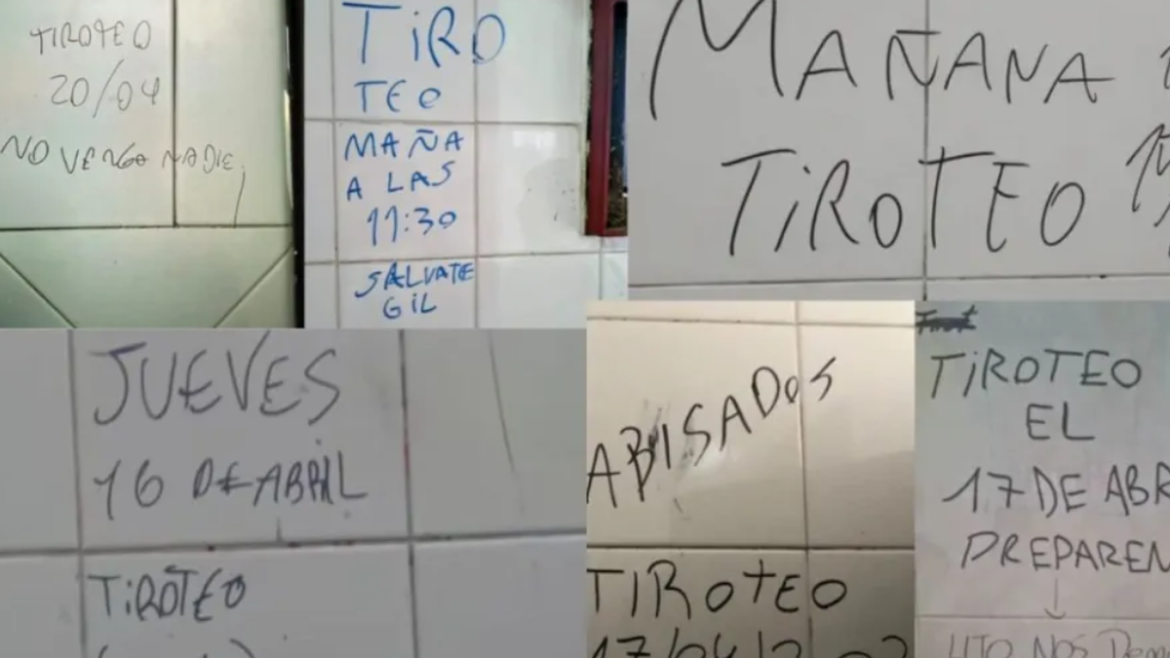 TIROTEO
20/04
NO VENGA NADIE
TIRO
TEO
MAÑA
A LAS
11:30
SALVATE
GIL
MAÑANA
TIROTEO
JUEVES
16 DE ABRIL
TIROTEO
ABISADOS
TIROTEO
TIROTEO
EL
17 DE ABR
PREPAREN